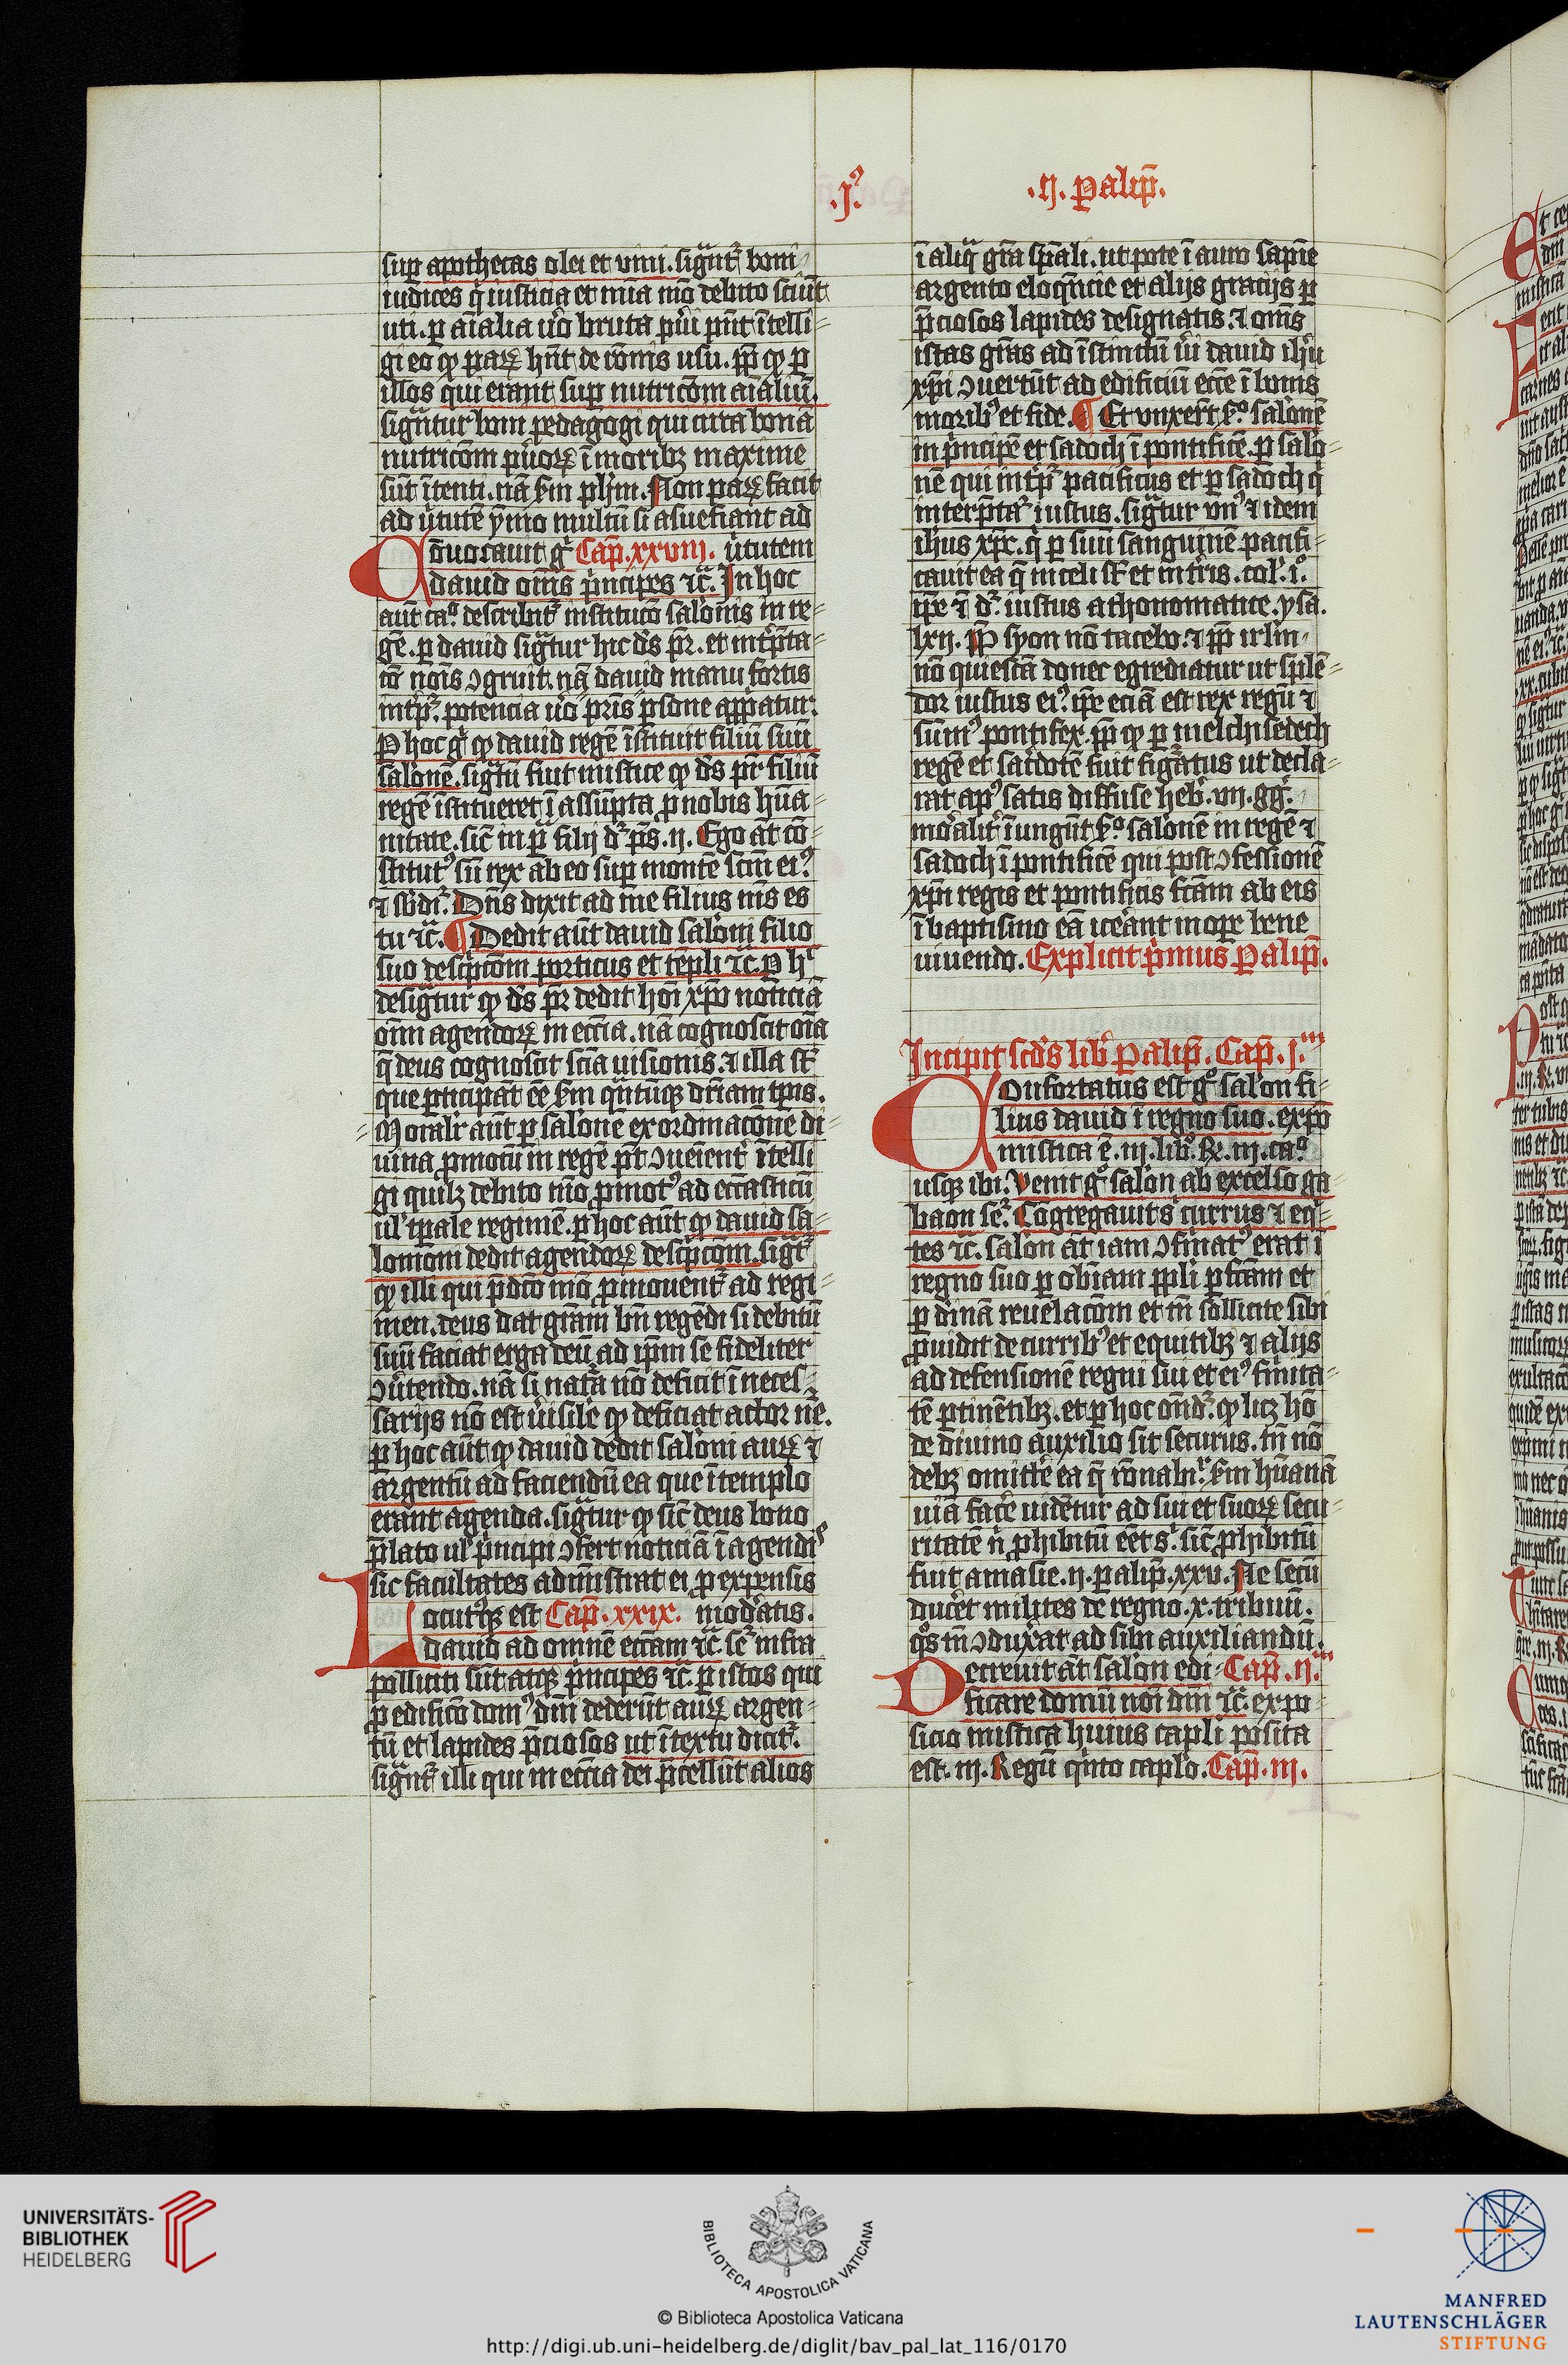 .j.ꝰ
.ij. Palip̄.
suꝑ apothecas olei et vini. sigᷓnt᷑ boni
iudices q̇ iusticia et mīa mō debito sciūt
uti. ꝑ aīalia u̇o bruta pu̇i pn̄t ītelli⸗
gi eo ꝙ paꝝ hn̄t de rōnis usu. ꝓpt̄ ꝙ ꝑ
illos qui erant suꝑ nutricōm aīaliū.
sigᷓntur boni pedagogi qui circa bonā
nutricōm pu̇oꝝ ī moribꝫ maxime
sūt ītenti. nā sm̄ ph̄m. Non paꝝ facit
ad u̇tutē ymo multū si asuefiant ad
Cōuocauit gͥ Cap̄. xxviij. u̇tutem
dauid om̄s pͥncipes ⁊cᷓ. In hoc
aūt caᵒ. describit᷑ institucō salōnis in re⸗
gē. ꝑ dauid sigᷓtur hic dꝰs pr̄. et int̄pͬta⸗
cō nōīs ↄgruit. nā dauid manu fortis
int̄p᷑. potencia u̇o pr̄is ꝑsone apꝓpatur.
ꝑ hoc gͥ ꝙ dauid regē īstituit filiū suū
salonē. sigᷓtū fuit mistice ꝙ dꝰs pr̄ filiū
regē īstitueret ī assūpta ꝓ nobis hūa⸗
nitate. sic̄ in ꝑ filij dr᷑ pꝰs. ij. Ego at̄ cō⸗
stitutꝰ sū rex ab eo suꝑ montē sc̄m eiꝰ
⁊ sbd᷑. Dn̄s dixit ad me filius mꝰs es
tu ⁊cᷓ. ¶ Dedit aūt dauid salōni filio
suo descͥpcōm porticus et tēpli ⁊cᷓ. ꝑ hͨ
desigᷓtur ꝙ dꝰs pr̄ dedit hoī xp̄o noticiā
oīm agendoꝝ in eccīa. nā cognoscit oīa
q̄ deus cognoscit sciā uisionis. ⁊ illa st̄
que ꝑticipāt eē sm̄ qn̄tūqꝫ dr̄iam tp̄is.
Moralr̄ aūt ꝑ salonē ex ordinacōne di⸗
uina ꝓmotū in regē pt̄ ↄueient᷑ ītelli
gi quilꝫ debito mō ꝓmotꝰ ad eccāsticū
ul̕ tp̄ale regimē. ꝑ hoc aūt ꝙ dauid sa⸗
lomoni dedit agendoꝝ descͥpcōm. sigᷓt᷑
ꝙ illi qui pͬdc̄o mō ꝓmouent᷑ ad regi⸗
men. deus dat grām bn̄ regēdi si debitū
suū faciat erga deū ad ip̄m se fideliter
ↄu̇tendo. nā si natᷓa nō deficit ī neces⸗
sarijs nō est u̇isil̕e ꝙ deficiat actor nē.
ꝑ hoc aūt ꝙ dauid dedit salōni auꝝ ⁊
argentū ad faciendū ea que ī templo
erant agenda. sigᷓtur ꝙ sic̄ deus bono
p̄lato ul̕ pͥncipi ↄfert noticiā ī agendiˢ
sic facultates admīstrat ei ꝓ expensis
Locutꝰqꝫ est Cap̄. xxix. modᷓatis.
dauid ad omnē eccām ⁊cᷓ. se᷑ infra
polliciti sūt atqꝫ pͥncipes ⁊cᷓ. ꝑ istos qui
ꝓ edificō domꝰ dn̄i dederūt auꝝ argen⸗
tū et lapides p̄ciosos ut ī textu dicit᷑.
sigᷓnt᷑ illi qui in eccīa dei p̄cellūt alios
ī aliqᷓ grā sp̄ali. ut pote ī auro sapīe
argento eloqn̄cie et alijs gracijs ꝑ
p̄ciosos lapides designatis. ⁊ om̄s
istas grās ad īstinctū u̇i dauid ih̄u
xp̄i ↄuertūt ad edificiū ecc̄e ī bonis
moribꝰ et fide. ¶ Et vnxer̄t sᵒ. salōnē
in pͥncipē et sadoch ī pontificē. ꝑ salo⸗
nē qui int̄p᷑ pacificus et ꝑ sadoch q̇
interp̄tat᷑ iustus. sigᷓtur vnꝰ ⁊ idem
ih̄us xp̄c. q̇ ꝑ suū sanguinē pacifi⸗
cauit ea q̄ in celis st̄ et in tr̄is. col̕. iᵒ.
ip̄e ⁊ dr᷑. iustus athonomatice. ysa.
lxij. Ꝓpt̄ syon nō tacebo. ⁊ ꝓpt̄ ir̄lm
nō quiescā donec egrediatur ut splē⸗
dor iustus eiꝰ. ip̄e eciā est rex regū ⁊
sūmꝰ pontifex. ꝓpt̄ ꝙ ꝑ melchisedech
regē et sac̄dotē fuit figᷓatus ut decla⸗
rat apꝰ satis diffuse heb̄. vij. gͥ.
moᷓalit̄ īungūt sᵒ salonē in regē ⁊
sadoch ī pontificē qui post ↄfessionē
xp̄i regis et pontificis fc̄am ab eis
ī baptismo eā ice᷑ant in oꝑe bene
uiuendo. Explicit pͥmus Palip̄.
Incipit scd̄s lib̄ Palip̄. Cap̄. j.ᵐ
Confortatus est gᵒ salon fi⸗
lius dauid ī regno suo. expō
mistica ē. iij. libᵒ. Re. iij. caᵒ
usqꝫ ibi. Venit gᵒ salon ab excelso ga⸗
baon se᷑. Cōgregauitꝗ currus ⁊ eqͥ⸗
tes ⁊cᷓ. salon at̄ iam ↄfirmatꝰ erat ī
regno suo ꝑ obīam ppli ꝑ fc̄am et
ꝑ diuinā reuelacōm et tn̄ sollicite sibi
ꝓuidit de curribꝰ et equitibꝫ ⁊ alijs
ad defensionē regni sui et eiꝰ firmita⸗
tē ꝑtinētibꝫ. et ꝑ hoc ond᷑. ꝙ licꝫ hō
de diuino auxilio sit securus. tn̄ nō
debꝫ omittē ea q̄ rōnabr̄. sm̄ hūanā
uiā facē uidētur ad sui et suoꝝ secu⸗
ritatē n̄ ꝓhibitū eēt sͥ. sic̄ ꝓhibitū
fuit amasie. ij. palip̄. xxv. Ne secū
ducēt milites de regno. x. tribuū.
qͦs tn̄ ↄduxᷓat ad sibi auxiliandū.
Decreuit at̄ salon edi⸗ Cap̄. ij.ᵐ
ficare domū noī dn̄i ⁊cᷓ. expo⸗
sicio mistica huius capl̄i posita
est. iij. Regū qͥnto caplo. Cap̄. iij.
UNIVERSITÄTS-
BIBLIOTHEK
HEIDELBERG
BIBLIOTECA APOSTOLICA VATICANA
© Biblioteca Apostolica Vaticana
http://digi.ub.uni-heidelberg.de/diglit/bav_pal_lat_116/0170
MANFRED
LAUTENSCHLÄGER
STIFTUNG